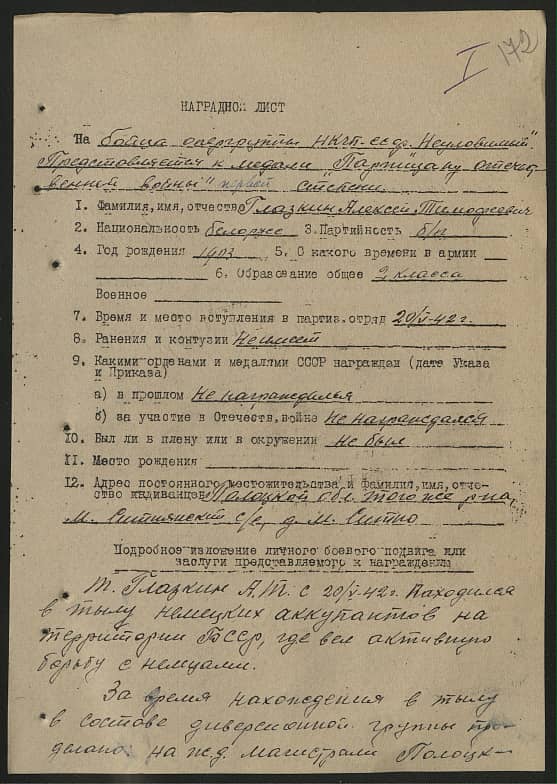 I 172
НАГРАДНОЙ ЛИСТ
На бойца опергруппы НКГБ-СССР "Неуловимый"
Представляется к медали "Партизану отечес
венной войны" первой степени
1. Фамилия, имя, отчество Глазкин Алексей Тимофеевич
2. Национальность белорус 3. Партийность б/п
4. Год рождения 1903 5. С какого времени в армии
6. Образование общее 2 класса
Военное
7. Время и место вступления в партиз. отряд 20/V-42 г.
8. Ранения и контузии Не имеет
9. Какими орденами и медалями СССР награжден (дата Указа
и Приказа)
а) в прошлом Не награждался
б) за участие в Отечеств. войне Не награждался
10. Был ли в плену или в окружении Не был
11. Место рождения
12. Адрес постоянного местожительства и фамилия, имя, отче-
ство иждивенцев Полоцкой обл. того же р-на,
М. Ситнянский с/с, д. М. Ситно
Подробное изложение личного боевого подвига или
заслуги представляемого к награждению
Т. Глазкин А.Т. с 20/V-42 г. Находился
в тылу немецких аккупантов на
территории БССР, где вел активную
борьбу с немцами.
За время нахождения в тылу
в составе диверсионной группы про-
делано: на ж.д. магистрали Полоцк-